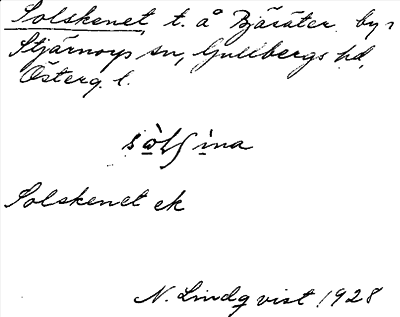 Solskenet, t. å Bjäsäter by,
Stjärnorps sn, Gullbergs hd,
Österg. l.
sòlʃìna
Solskenet ek
N. Lindqvist 1928